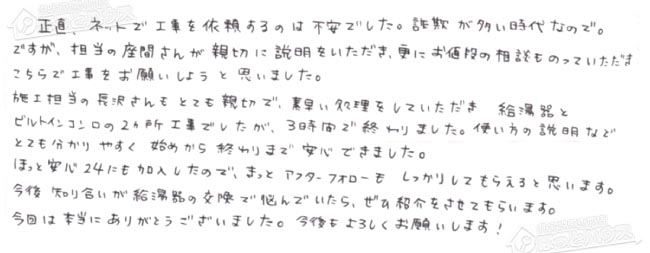 正直、ネットで工事を依頼するのは不安でした。詐欺が多い時代なので。
ですが、担当の座間さんが親切に説明をいただき、更にお値段の相談ものっていただき
こちらで工事をお願いしようと思いました。
施工担当の長沢さんもとても親切で、素早い処理をしていただき 給湯器と
ビルトインコンロの2ヵ所工事でしたが、3時間で終わりました。使い方の説明など
とても分かりやすく 始めから終わりまで安心できました。
ほっと安心24にも加入したので、きっとアフターフォローも しっかりしてもらえると思います。
今後 知り合いが給湯器の交換で悩んでいたら、ぜひ紹介をさせてもらいます。
今回は本当にありがとうございました。今後もよろしくお願いします!